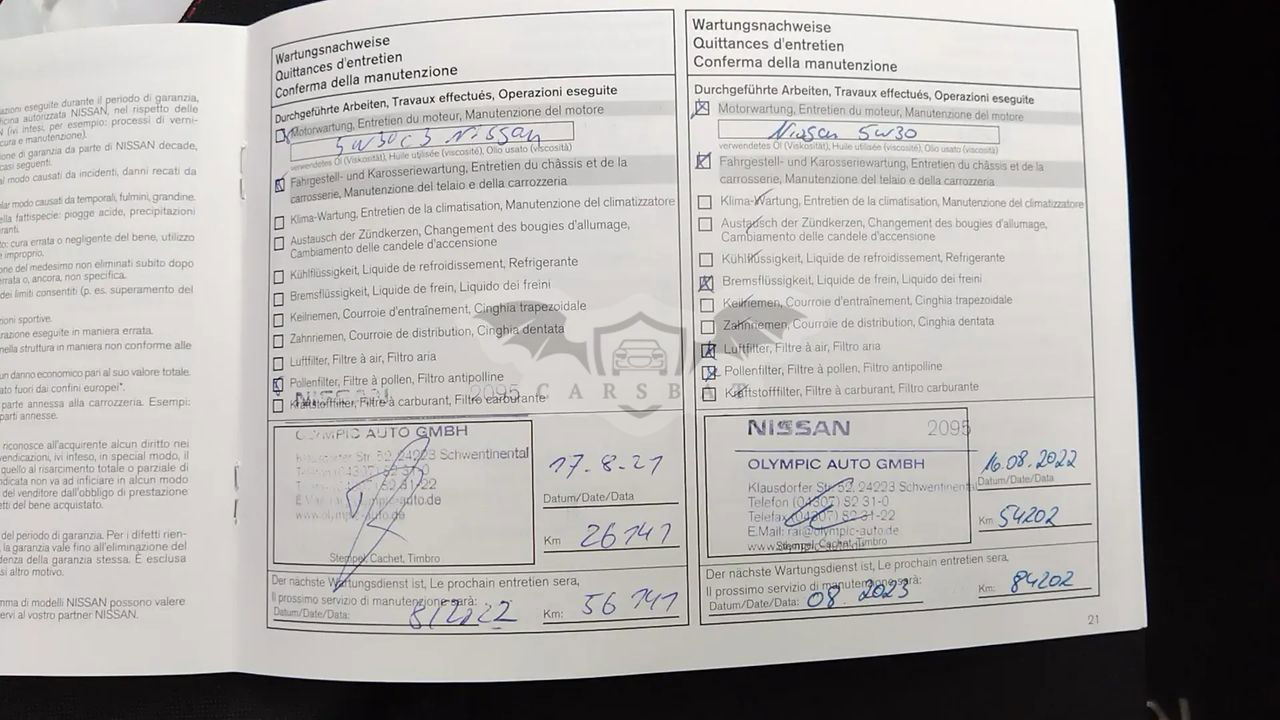 azioni eseguite durante il periodo di garanzia,
officina autorizzata NISSAN, nel rispetto delle
N (ivi intesi, per esempio: processi di verni-
cura e manutenzione).
one di garanzia da parte di NISSAN decade,
casi seguenti.
al modo causati da incidenti, danni recati da
lar modo causati da temporali, fulmini, grandine.
ella fattispecie: piogge acide, precipitazioni
ranti.
to: cura errata o negligente del bene, utilizzo
e improprio.
one del medesimo non eliminati subito dopo
errata o, ancora, non specifica.
dei limiti consentiti (p. es. superamento del
ioni sportive.
razione eseguite in maniera errata.
nella struttura in maniera non conforme alle
un danno economico pari al suo valore totale.
ato fuori dai confini europei*.
parte annessa alla carrozzeria. Esempi:
parti annesse.
riconosce all'acquirente alcun diritto nei
vendicazioni, ivi inteso, in special modo, il
quello al risarcimento totale o parziale di
indicata non va ad inficiare in alcun modo
del venditore dall'obbligo di prestazione
etti del bene acquistato.
del periodo di garanzia. Per i difetti rien-
la garanzia vale fino all'eliminazione del
denza della garanzia stessa. È esclusa
si altro motivo.
mma di modelli NISSAN possono valere
ervi al vostro partner NISSAN.
Wartungsnachweise
Quittances d'entretien
Conferma della manutenzione
Durchgeführte Arbeiten, Travaux effectués, Operazioni eseguite
Motorwartung, Entretien du moteur, Manutenzione del motore
5W30 C3 Nissan
verwendetes Öl (Viskosität), Huile utilisée (viscosité), Olio usato (viscosità)
Fahrgestell- und Karosseriewartung, Entretien du châssis et de la
carrosserie, Manutenzione del telaio e della carrozzeria
Klima-Wartung, Entretien de la climatisation, Manutenzione del climatizzatore
Austausch der Zündkerzen, Changement des bougies d'allumage,
Cambiamento delle candele d'accensione
Kühlflüssigkeit, Liquide de refroidissement, Refrigerante
Bremsflüssigkeit, Liquide de frein, Liquido dei freini
Keilriemen, Courroie d'entraînement, Cinghia trapezoidale
Zahnriemen, Courroie de distribution, Cinghia dentata
Luftfilter, Filtre à air, Filtro aria
Pollenfilter, Filtre à pollen, Filtro antipolline
Kraftstofffilter, Filtre à carburant, Filtro carburante
NISSAN 2095
OLYMPIC AUTO GMBH
Klausdorfer Str. 52, 24223 Schwentinental
Telefon (04307) 82 31-0
Telefax (04307) 82 31-22
www.olympic-auto.de
Stempel, Cachet, Timbro
17.8.21
Datum/Date/Data
Km 26741
Der nächste Wartungsdienst ist, Le prochain entretien sera,
Il prossimo servizio di manutenzione sarà:
Datum/Date/Data: 8/2022 Km: 56741
Wartungsnachweise
Quittances d'entretien
Conferma della manutenzione
Durchgeführte Arbeiten, Travaux effectués, Operazioni eseguite
Motorwartung, Entretien du moteur, Manutenzione del motore
Nissan 5W30
verwendetes Öl (Viskosität), Huile utilisée (viscosité), Olio usato (viscosità)
Fahrgestell- und Karosseriewartung, Entretien du châssis et de la
carrosserie, Manutenzione del telaio e della carrozzeria
Klima-Wartung, Entretien de la climatisation, Manutenzione del climatizzatore
Austausch der Zündkerzen, Changement des bougies d'allumage,
Cambiamento delle candele d'accensione
Kühlflüssigkeit, Liquide de refroidissement, Refrigerante
Bremsflüssigkeit, Liquide de frein, Liquido dei freini
Keilriemen, Courroie d'entraînement, Cinghia trapezoidale
Zahnriemen, Courroie de distribution, Cinghia dentata
Luftfilter, Filtre à air, Filtro aria
Pollenfilter, Filtre à pollen, Filtro antipolline
Kraftstofffilter, Filtre à carburant, Filtro carburante
NISSAN 2095
OLYMPIC AUTO GMBH
Klausdorfer Str. 52, 24223 Schwentinental
Telefon (04307) 82 31-0
Telefax (04307) 82 31-22
E.Mail: rai@olympic-auto.de
www.olympic-auto.de
Stempel, Cachet, Timbro
16.08.2022
Datum/Date/Data
Km 54202
Der nächste Wartungsdienst ist, Le prochain entretien sera,
Il prossimo servizio di manutenzione sarà:
Datum/Date/Data: 08.2023 Km: 84202
21